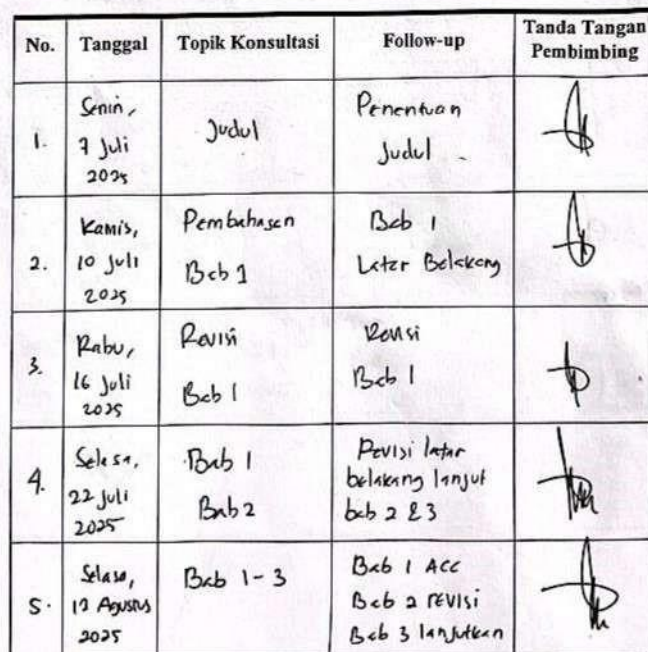 No. Tanggal Topik Konsultasi Follow-up Tanda Tangan Pembimbing
1. Senin, 7 Juli 2025 Judul Penentuan Judul
2. Kamis, 10 Juli 2025 Pembahasan Bab 1 Bab 1 Latar Belakang
3. Rabu, 16 Juli 2025 Revisi Bab 1 Revisi Bab 1
4. Selasa, 22 Juli 2025 Bab 1 Bab 2 Revisi latar belakang lanjut bab 2 & 3
5. Selasa, Agustus 2025 Bab 1-3 Bab 1 ACC Bab 2 revisi Bab 3 lanjutkan